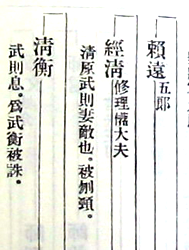 賴遠五郎
經淸修理權大夫
淸原武則妻敵也。被刎頸。
淸衡
武則息。爲武衡被誅。